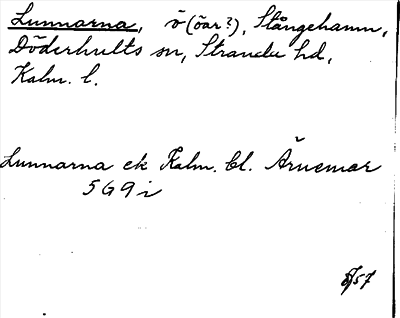 Lunnarna, ö (öar?), Stångehamn,
Döderhults sn, Stranda hd,
Kalm. l.
Lunnarna ek Kalm. bl. Ärnemar
5G9i
5/57